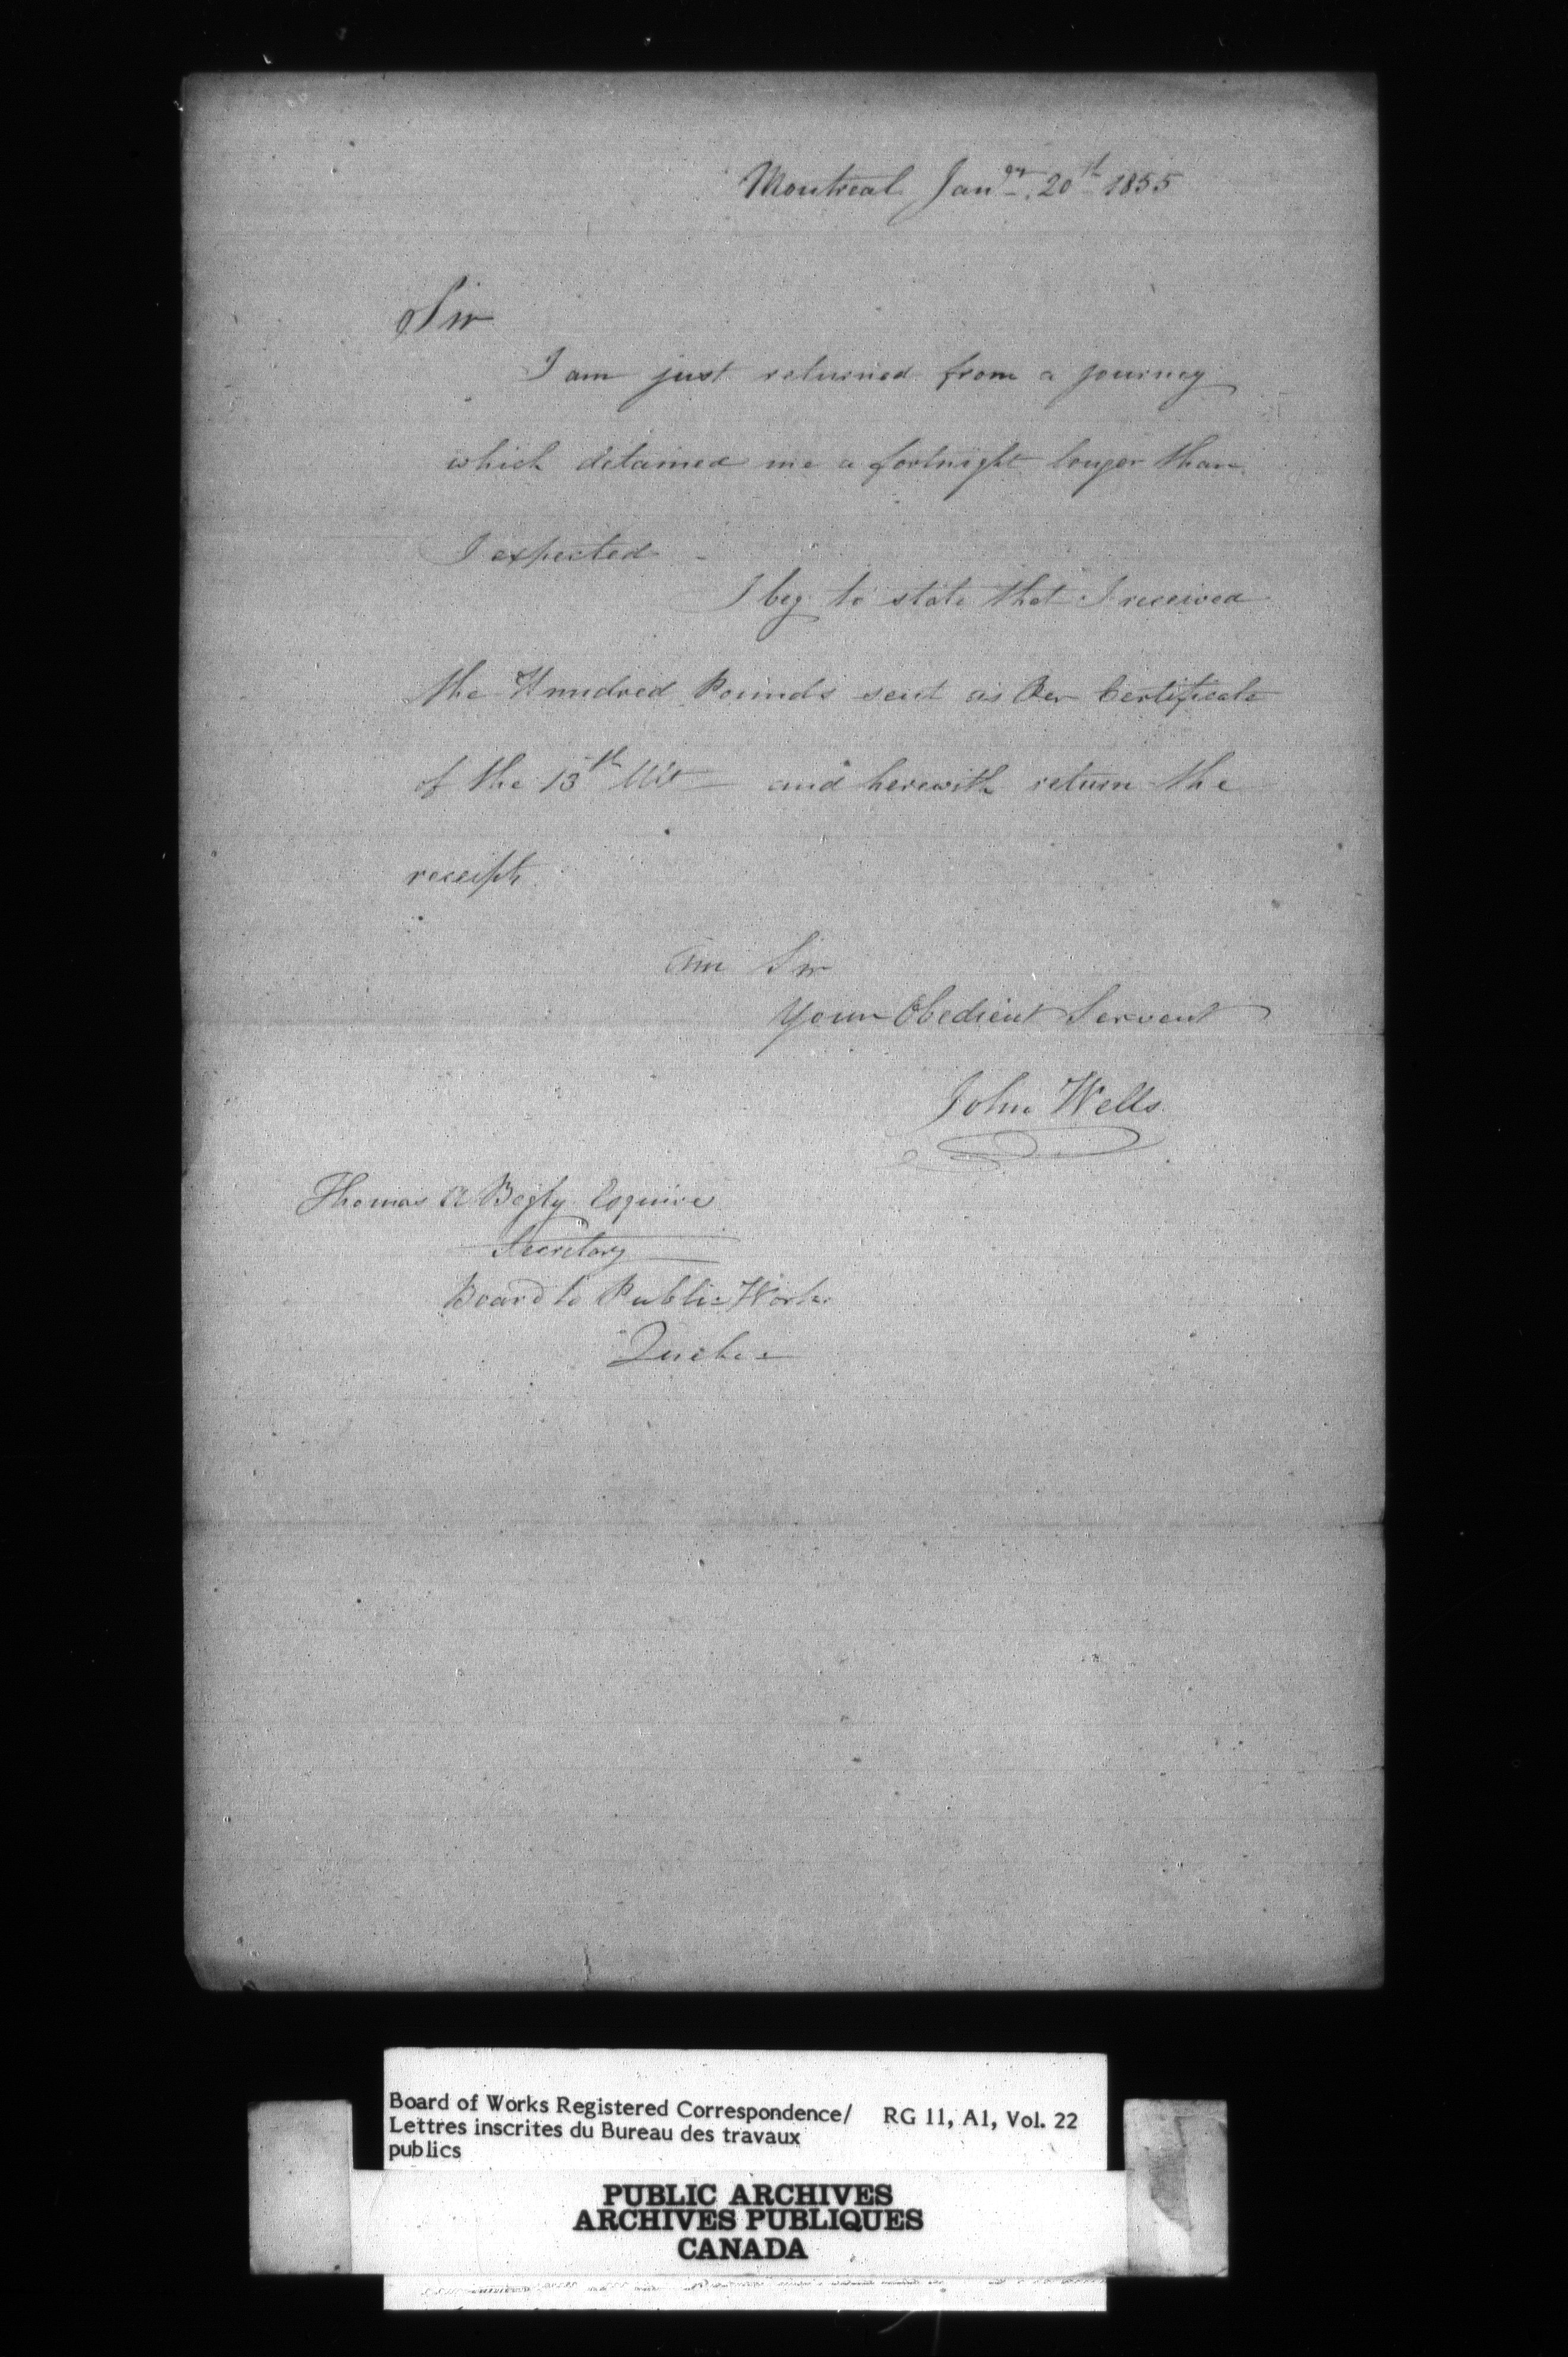 Montreal Jan^ry. 20^th 1855
Sir
I am just returned from a journey
which detained me a fortnight longer than
I expected -
I beg to state that I received
the Hundred Pounds sent as Per Certificate
of the 13^th Ult - and herewith return the
receipt
Am Sir
Your Obedient Servent
John Wells
Thomas A Begly Esquire
Secretary
Board to Public Works
Quebec
Board of Works Registered Correspondence/ RG 11, A1, Vol. 22
Lettres inscrites du Bureau des travaux
publics
PUBLIC ARCHIVES
ARCHIVES PUBLIQUES
CANADA